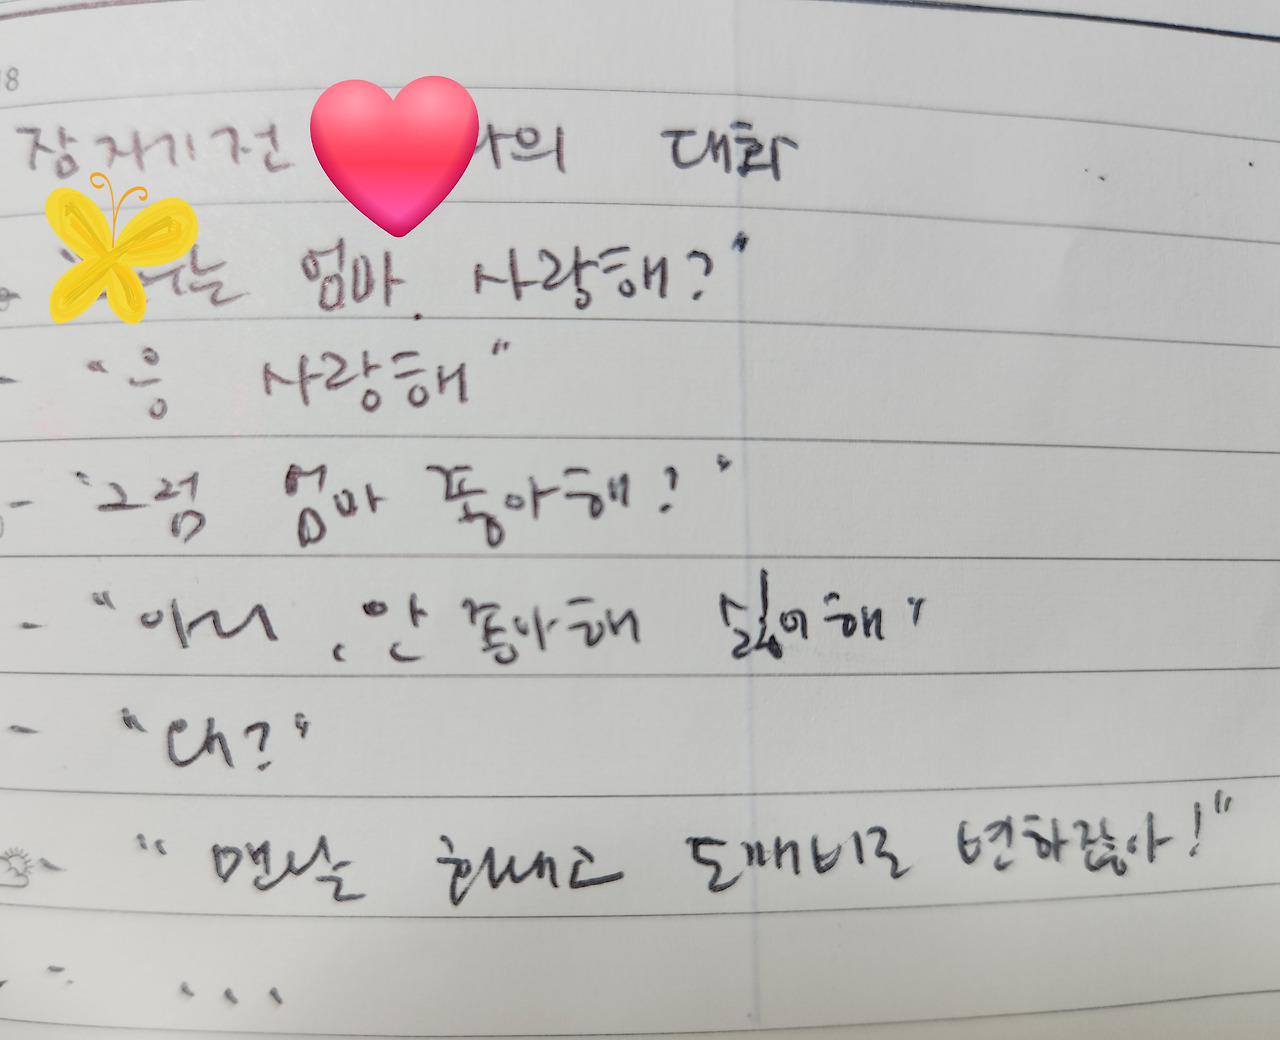 18
잠자기전 의 대화
는 엄마 사랑해?"
- "응 사랑해"
- "그럼 엄마 좋아해?"
- "아니, 안 좋아해 싫어해"
- "대?"
- "맨날 화내고 도깨비로 변하잖아!"
- ...